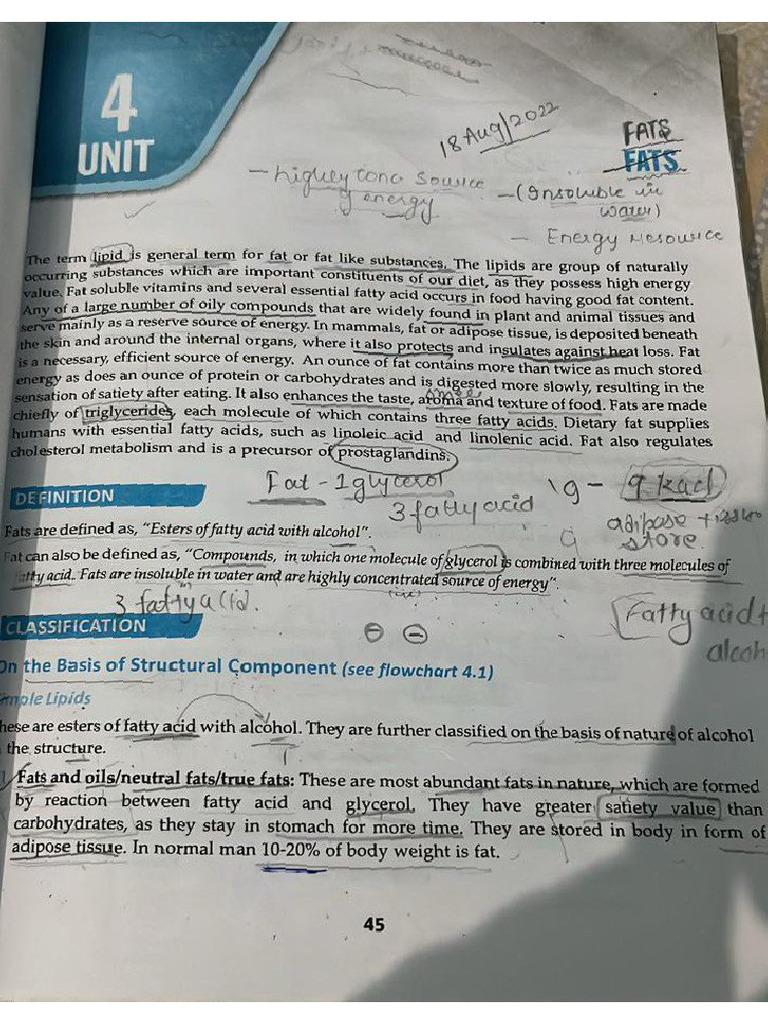 4
UNIT
18 Aug/2022
FATS
FATS
- highly conc source
of energy
- (Insoluble in
water)
- Energy resource
The term lipid is general term for fat or fat like substances. The lipids are group of naturally
occurring substances which are important constituents of our diet, as they possess high energy
value. Fat soluble vitamins and several essential fatty acid occurs in food having good fat content.
Any of a large number of oily compounds that are widely found in plant and animal tissues and
serve mainly as a reserve source of energy. In mammals, fat or adipose tissue, is deposited beneath
the skin and around the internal organs, where it also protects and insulates against heat loss. Fat
is a necessary, efficient source of energy. An ounce of fat contains more than twice as much stored
energy as does an ounce of protein or carbohydrates and is digested more slowly, resulting in the
sensation of satiety after eating. It also enhances the taste, aroma and texture of food. Fats are made
chiefly of triglycerides, each molecule of which contains three fatty acids. Dietary fat supplies
humans with essential fatty acids, such as linoleic acid and linolenic acid. Fat also regulates
cholesterol metabolism and is a precursor of prostaglandins.
Fat - 1 glycerol
3 fatty acid
1g - 9 kcal
adipose tissue
store.
DEFINITION
Fats are defined as, "Esters of fatty acid with alcohol".
Fat can also be defined as, "Compounds, in which one molecule of glycerol is combined with three molecules of
fatty acid. Fats are insoluble in water and are highly concentrated source of energy".
3 fatty acid.
Fatty acid +
alcoh
CLASSIFICATION
On the Basis of Structural Component (see flowchart 4.1)
Simple Lipids
These are esters of fatty acid with alcohol. They are further classified on the basis of nature of alcohol
the structure.
Fats and oils/neutral fats/true fats: These are most abundant fats in nature, which are formed
by reaction between fatty acid and glycerol. They have greater satiety value than
carbohydrates, as they stay in stomach for more time. They are stored in body in form of
adipose tissue. In normal man 10-20% of body weight is fat.
45